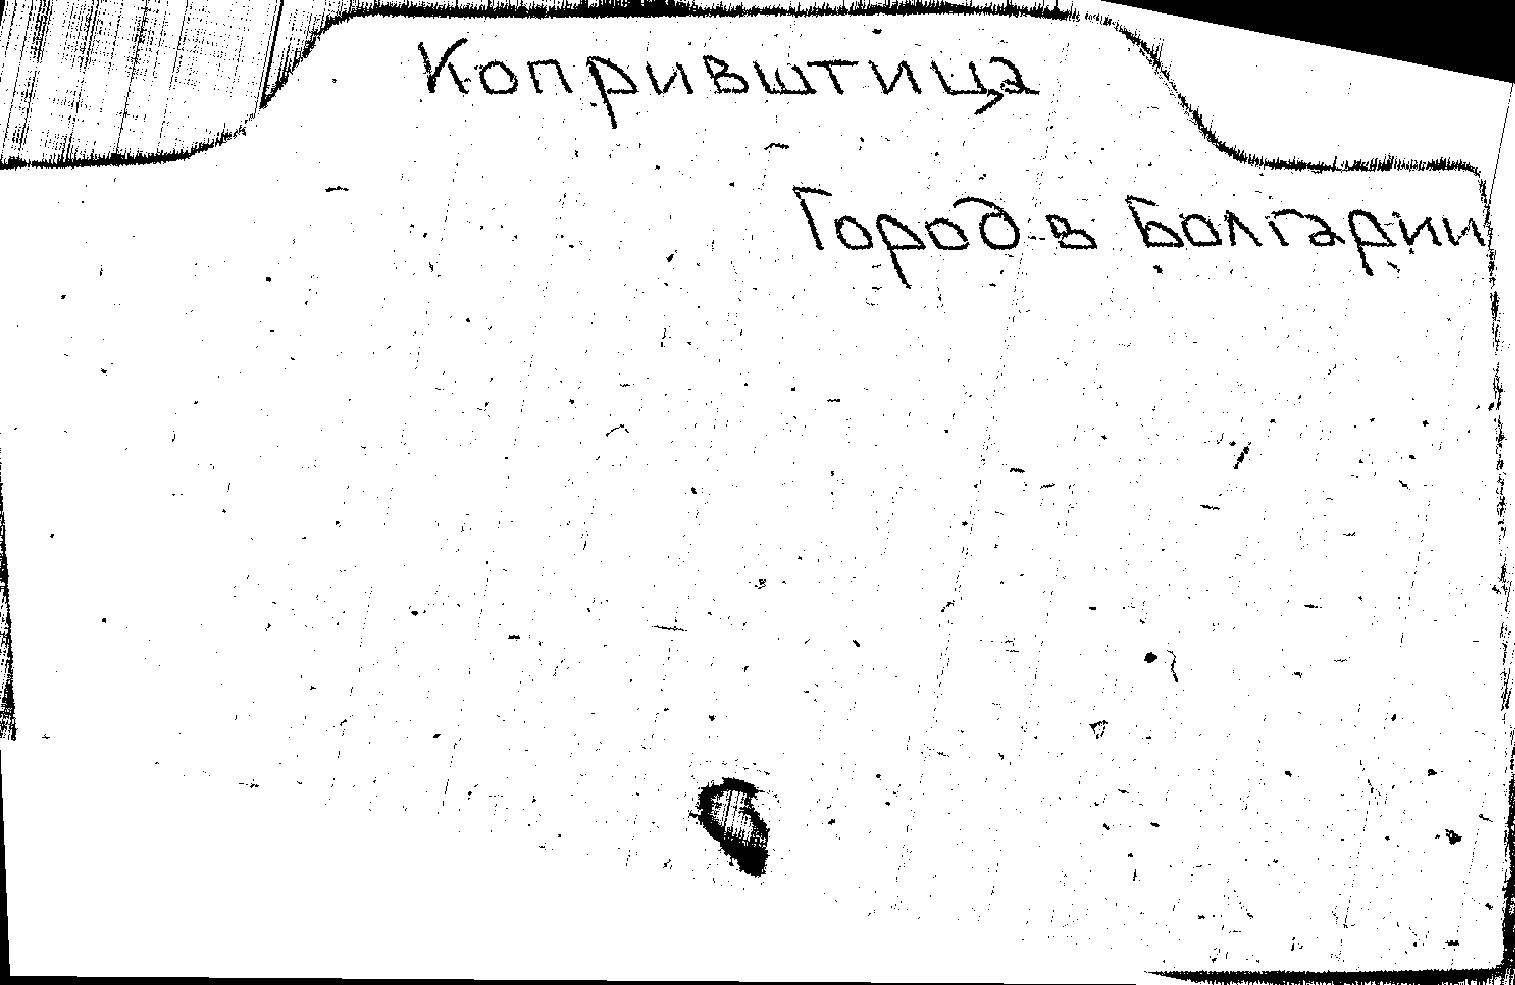 Копривштица
Город в Болгарии